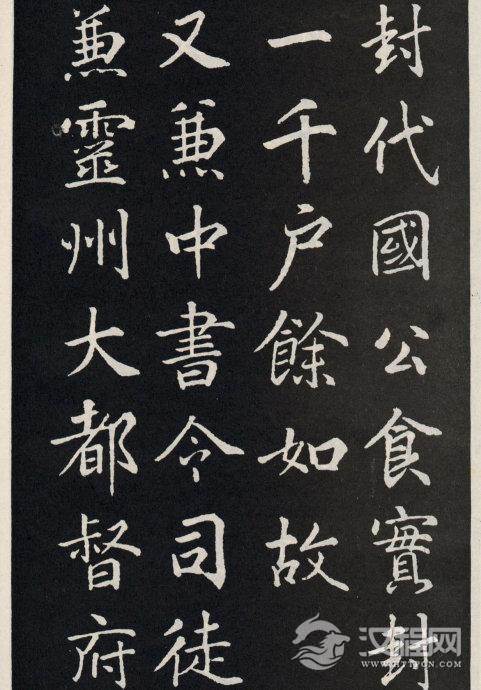 封代國公食實封
一千户餘如故
又兼中書令司徒
兼靈州大都督府
汉程网
WWW.HTTPCN.COM